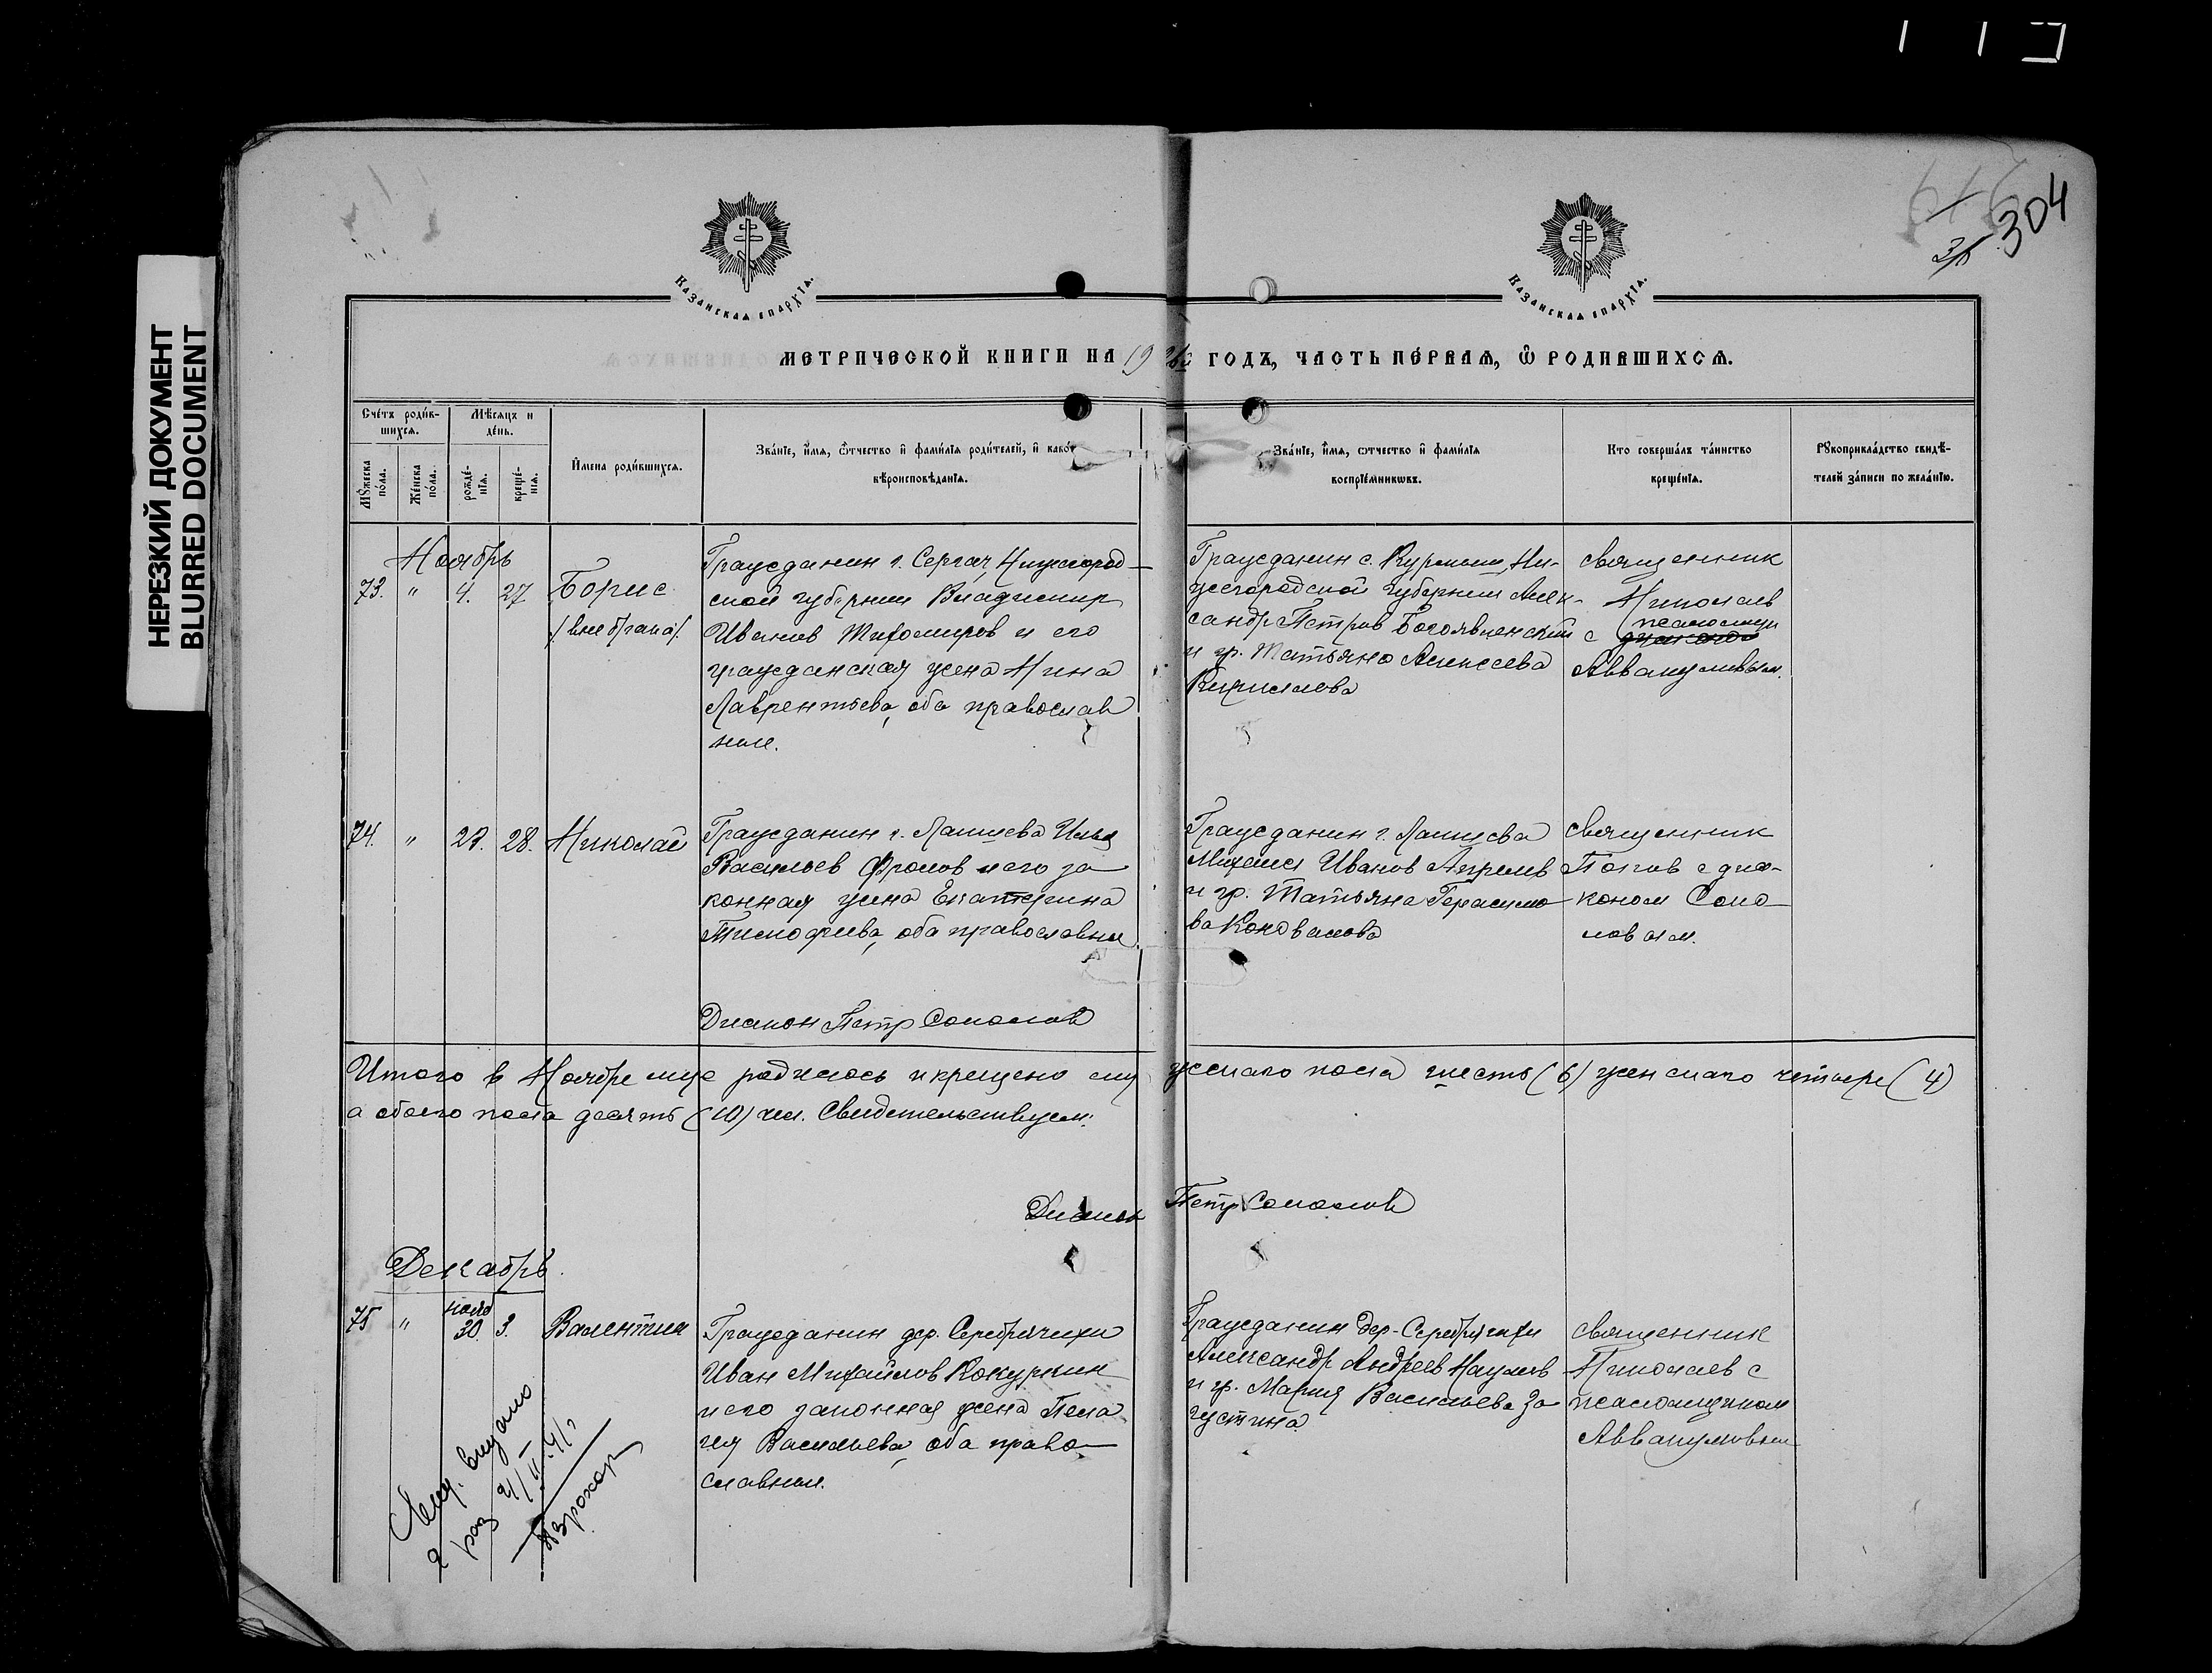 НЕРЕЗКИЙ ДОКУМЕНТ
BLURRED DOCUMENT
304
Казанская епархїа.
Казанская епархїа.
МЕТРИЧЕСКОЙ КНИГИ НА 19 ГОДЪ, ЧАСТЬ ПЕ́РВАЯ, Ѿ РОДИВШИХСЯ.
Сче́тъ роди́в-
шихся.
Мѣ́сяцъ и
де́нь.
Мꙋ́жеска
по́ла.
Же́нска
по́ла.
рожде́-
нїя.
креще́-
нїя.
И҆мена роди́вшихся.
Зва́нїе, и҆́мя, ѻ҆́тчество и҆ фами́лїя роди́телей, и҆ како́
вѣроисповѣ́данїя.
Зва́нїе, и҆́мя, ѻ҆тчество и҆ фами́лїя
воспрїе́мникѡвъ.
Кто соверша́лъ та́инство
креще́нїя.
Рꙋкоприкла́дство свидѣ́-
телей за́писи по жела́нїю.
Ноябрь
73. " 4. 27 Борис
/внебрачн/.
Гражданин г. Сергач, Нижегород-
ской губернии Владимир
Иванов Тихомиров и его
гражданская жена Нина
Лаврентьева, оба православ
ные.
Гражданин с. Курмыша, Ни-
жегородской губернии Алек-
сандр Петров Богоявленский
и гр. Татьяна Алексеева
Кириллова
священник
Николаев
с псаломщи
Аввакумовым.
74. " 27. 28. Николай
Гражданин г. Лаишева Илья
Васильев Фролов и его за
конная жена Екатерина
Тимофеева, оба православные
Гражданин г. Лаишева
Михаил Иванов Апрелев
и гр. Татьяна Герасимо
ва Коновалова
священник
Попов с диа-
коном Соко
ловым.
Диакон Петр Соколов
Итого в Ноябре м-це родилось и крещено мужескаго пола шесть (6) женскаго четыре (4)
а обоего пола десять (10) чел. Свидетельствуем:
Диакон Петр Соколов
Декабрь.
75 " нояб 30. 3. Валентин
Гражданин дер. Серебрячихи
Иван Михайлов Кокуркин
и его законная жена Пела
гея Васильева, оба право-
славные.
Гражданин дер. Серебрячихи
Александр Андреев Наумов
и гр. Мария Васильева За
густина
священник
Николаев с
псаломщиком
Аввакумовым
выдано
2 раз